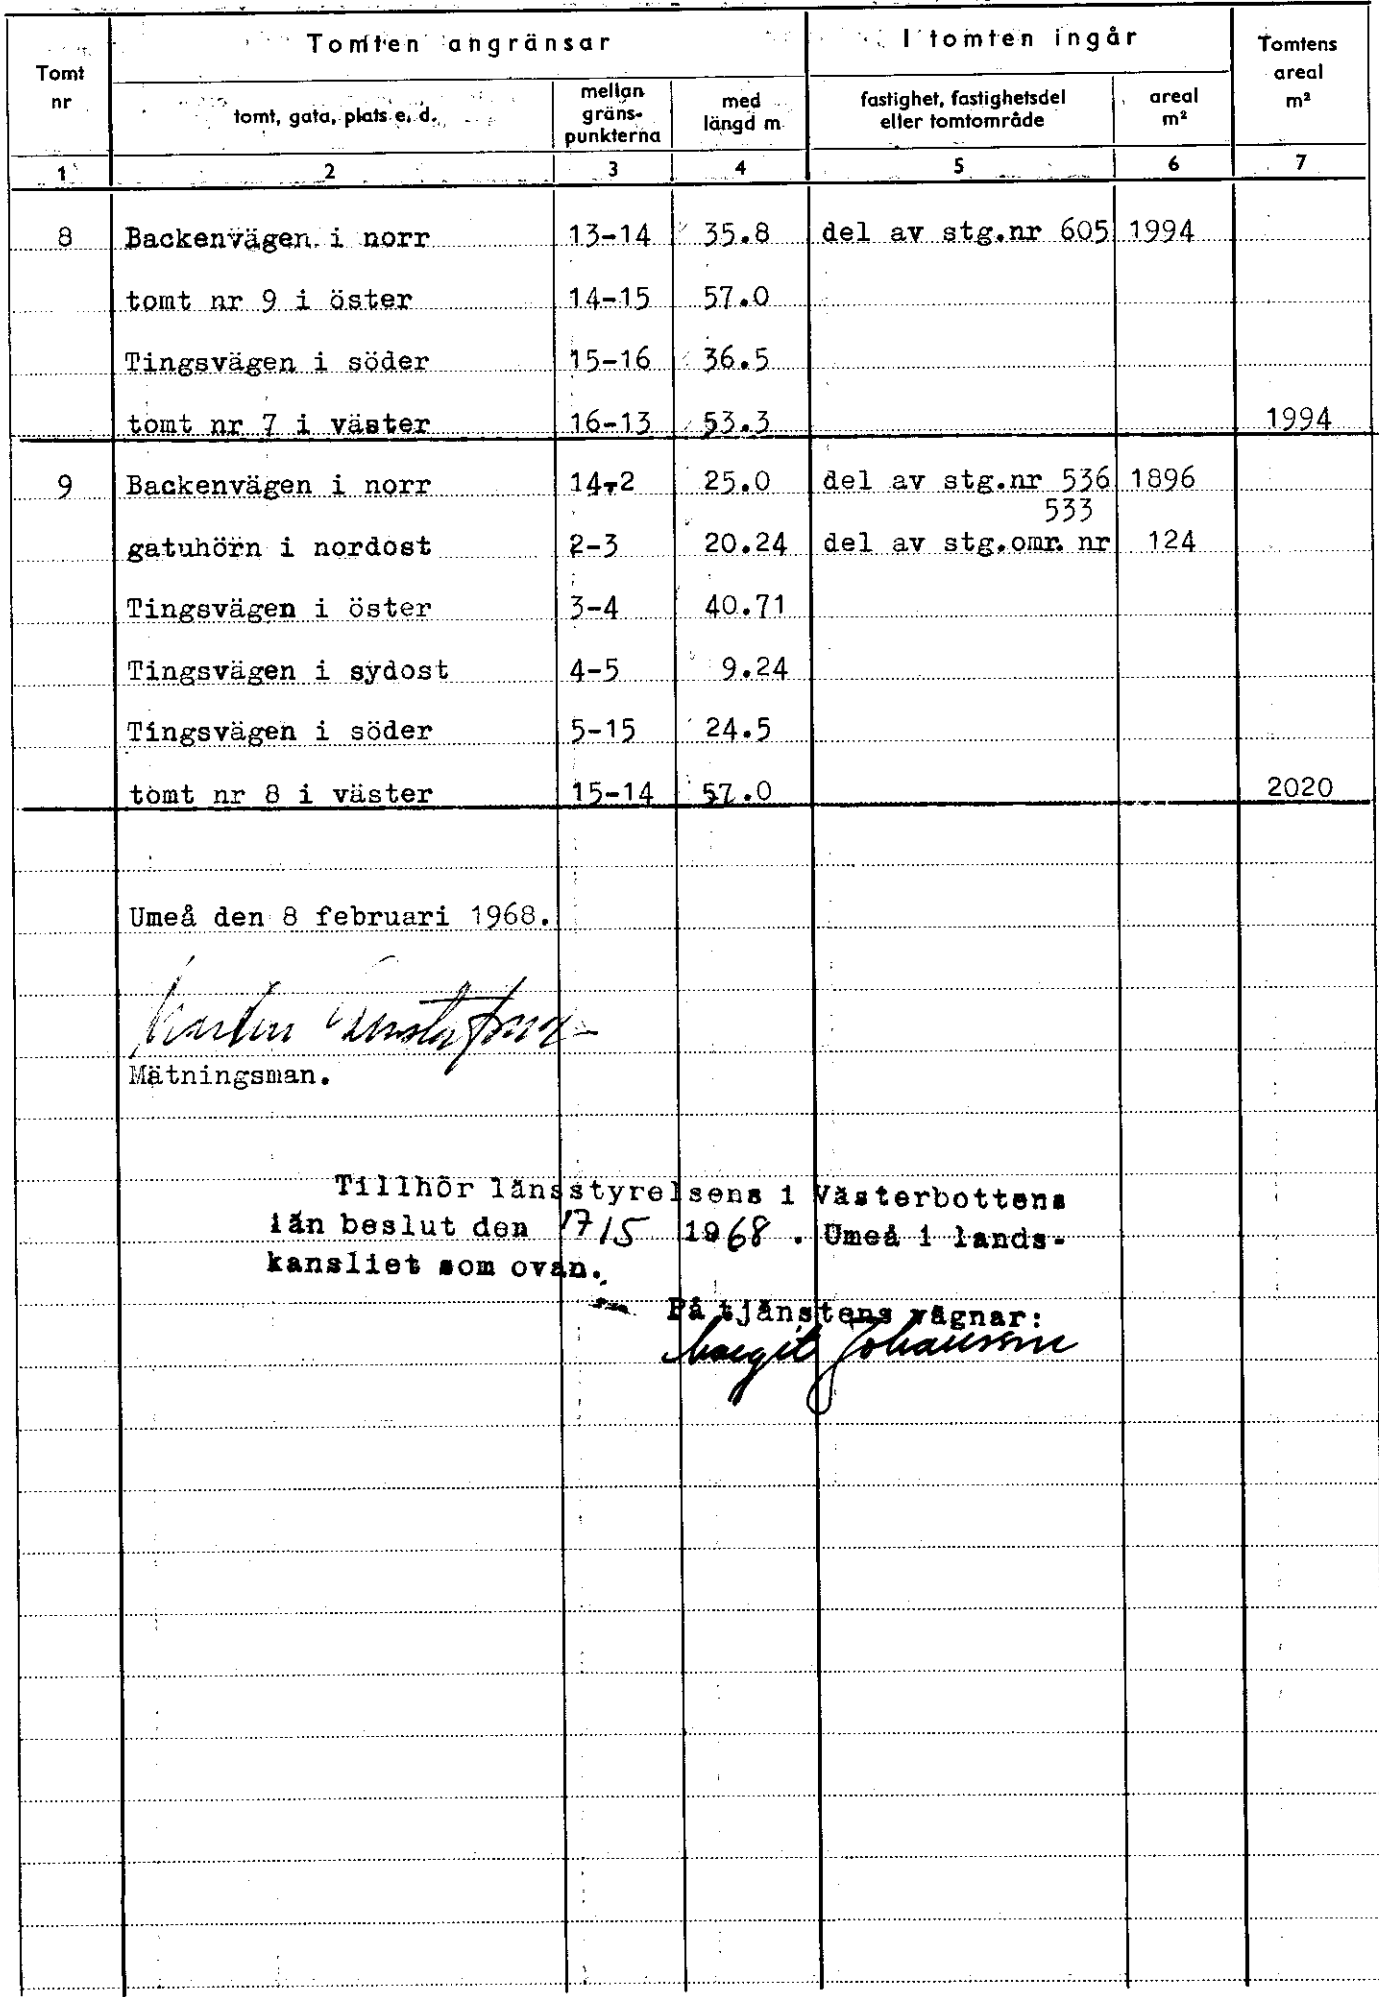 Tomt nr | Tomten angränsar | I tomten ingår | Tomtens areal m²
tomt, gata, plats e. d. | mellan gräns-punkterna | med längd m | fastighet, fastighetsdel eller tomtområde | areal m²
1 | 2 | 3 | 4 | 5 | 6 | 7
8 | Backenvägen i norr | 13-14 | 35.8 | del av stg.nr 605 | 1994
tomt nr 9 i öster | 14-15 | 57.0
Tingsvägen i söder | 15-16 | 36.5
tomt nr 7 i väster | 16-13 | 53.3 | 1994
9 | Backenvägen i norr | 14-2 | 25.0 | del av stg.nr 536 | 1896
533
gatuhörn i nordost | 2-3 | 20.24 | del av stg.omr. nr | 124
Tingsvägen i öster | 3-4 | 40.71
Tingsvägen i sydost | 4-5 | 9.24
Tingsvägen i söder | 5-15 | 24.5
tomt nr 8 i väster | 15-14 | 57.0 | 2020
Umeå den 8 februari 1968.
Mätningsman.
Tillhör länsstyrelsens i Västerbottens
län beslut den 17/5 1968. Umeå i lands-
kansliet som ovan.
På tjänstens vägnar:
Margit Johansson